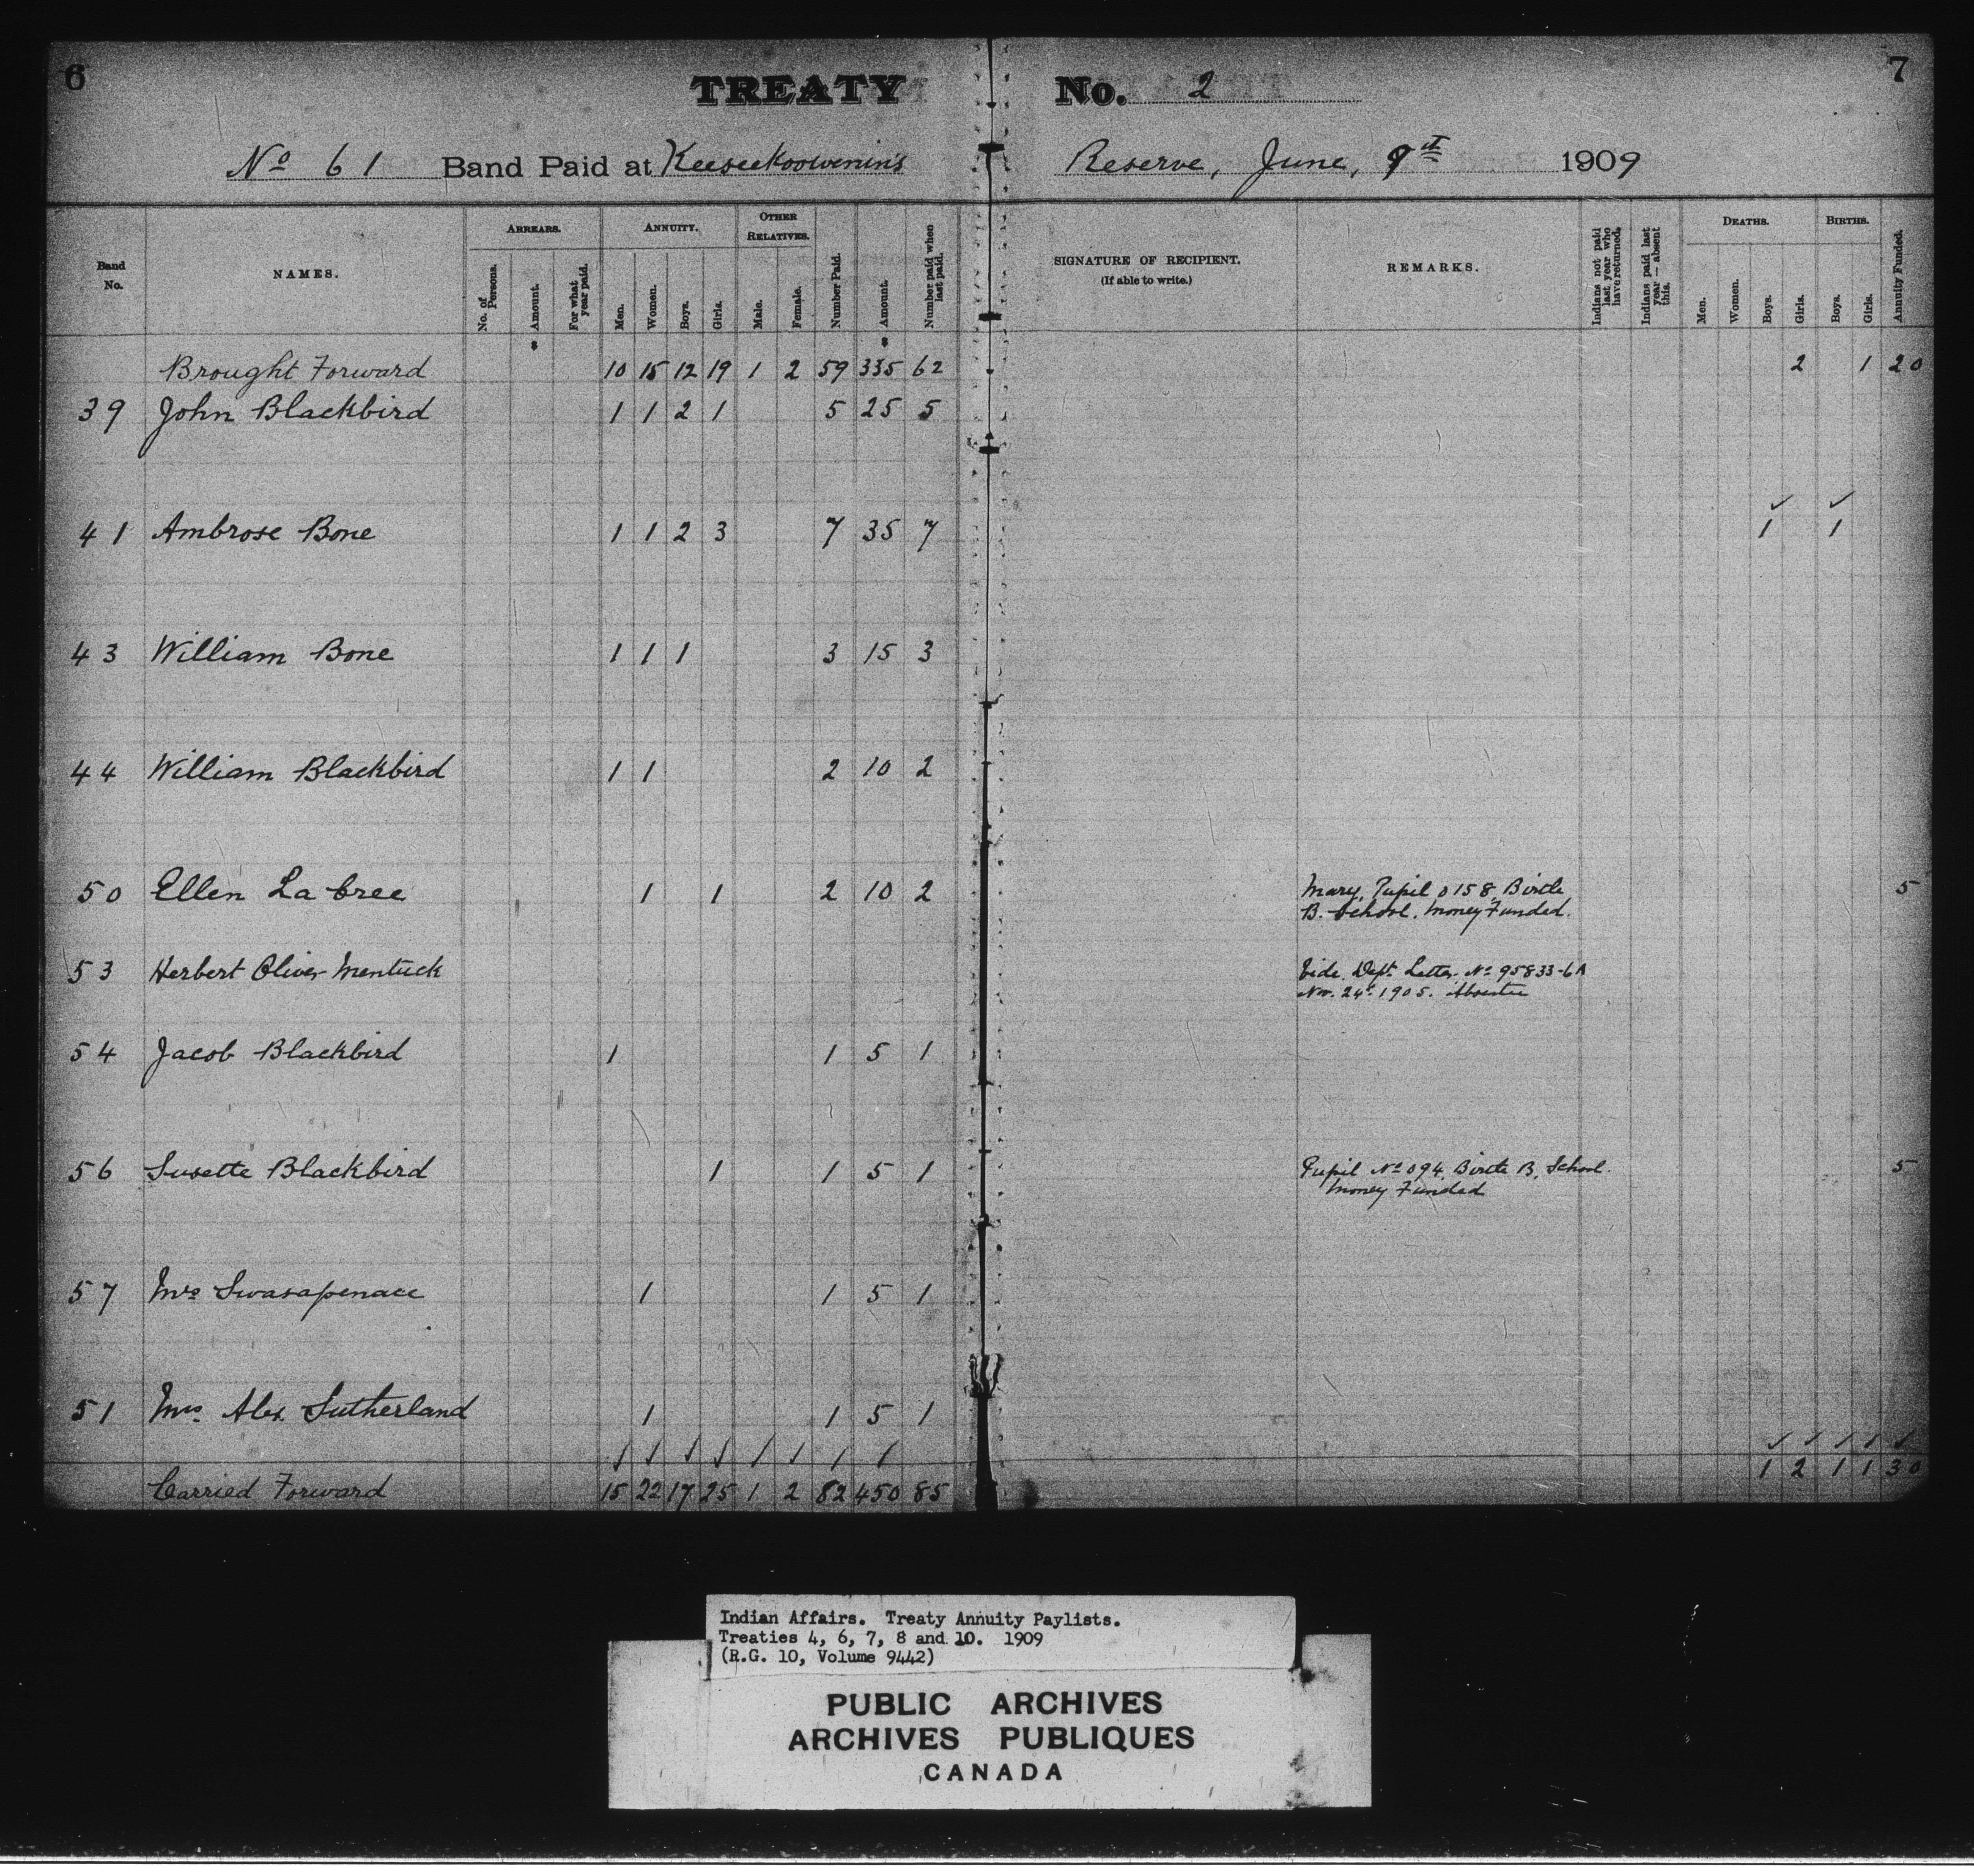 6 TREATY No. 2 7
No 61 Band Paid at Keeseekoowenin's Reserve, June, 9th 1909
Band No. NAMES. ARREARS. ANNUITY. OTHER RELATIVES. Number Paid. Amount. Number paid when last paid. SIGNATURE OF RECIPIENT. (If able to write.) REMARKS. Indians not paid last year who have returned. Indians paid last year — absent this. DEATHS. BIRTHS. Annuity Funded.
No. of Persons. Amount. For what year paid. Men. Women. Boys. Girls. Male. Female. Men. Women. Boys. Girls. Boys. Girls.
Brought Forward 10 15 12 19 1 2 59 335 62 2 1 20
39 John Blackbird 1 1 2 1 5 25 5
41 Ambrose Bone 1 1 2 3 7 35 7 1 1
43 William Bone 1 1 1 3 15 3
44 William Blackbird 1 1 2 10 2
50 Ellen La Cree 1 1 2 10 2 Mary, Pupil 0158, Birtle 5
B. School. Money Funded.
53 Herbert Oliver Mentuck Vide. Dept. Letter No 95833-6A
Nov. 24th 1905. Absentee
54 Jacob Blackbird 1 1 5 1
56 Susette Blackbird 1 1 5 1 Pupil No 094, Birtle B. School. 5
Money Funded
57 Mrs Swasapenace 1 1 5 1
51 Mrs. Alex Sutherland 1 1 5 1
Carried Forward 15 22 17 25 1 2 82 450 85 1 2 1 1 30
Indian Affairs. Treaty Annuity Paylists.
Treaties 4, 6, 7, 8 and 10. 1909
(R.G. 10, Volume 9442)
PUBLIC ARCHIVES
ARCHIVES PUBLIQUES
CANADA